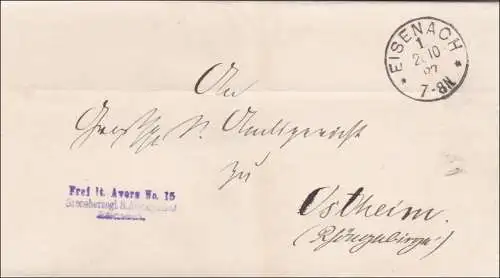 EISENACH
1
2 10
7-8N.
An
Grossh. S. Amtsgericht
zu
Frei lt. Avers No. 15
Grossherzogl. S.
Ostheim.
(Rhöngebirge)